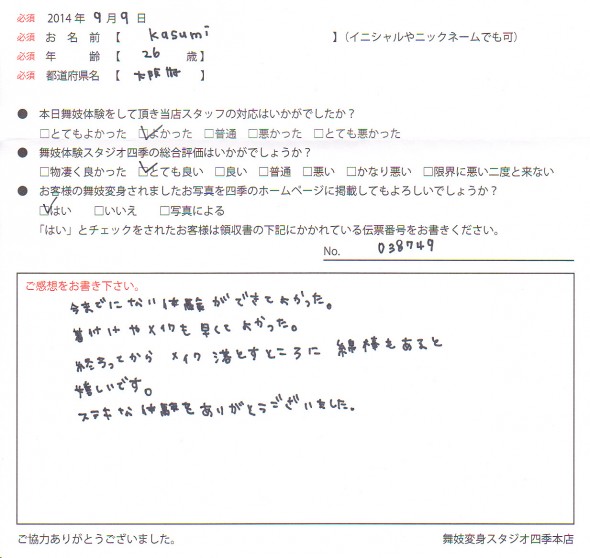 必須 2014年 9月 9日
必須 お名前【 kasumi 】(イニシャルやニックネームでも可)
必須 年齢【 26 歳】
必須 都道府県名【 大阪府 】
● 本日舞妓体験をして頂き当店スタッフの対応はいかがでしたか?
□とてもよかった ☑よかった □普通 □悪かった □とても悪かった
● 舞妓体験スタジオ四季の総合評価はいかがでしょうか?
□物凄く良かった ☑とても良い □良い □普通 □悪い □かなり悪い □限界に悪い二度と来ない
● お客様の舞妓変身されましたお写真を四季のホームページに掲載してもよろしいでしょうか?
☑はい □いいえ □写真による
「はい」とチェックをされたお客様は領収書の下記にかかれている伝票番号をお書きください。
No. 038749
ご感想をお書き下さい。
今までにない体験ができてよかった。
着付けやメイクも早くてよかった。
終わってから メイク落とすところに 綿棒もあると
嬉しいです。
ステキな体験をありがとうございました。
ご協力ありがとうございました。 舞妓変身スタジオ四季本店